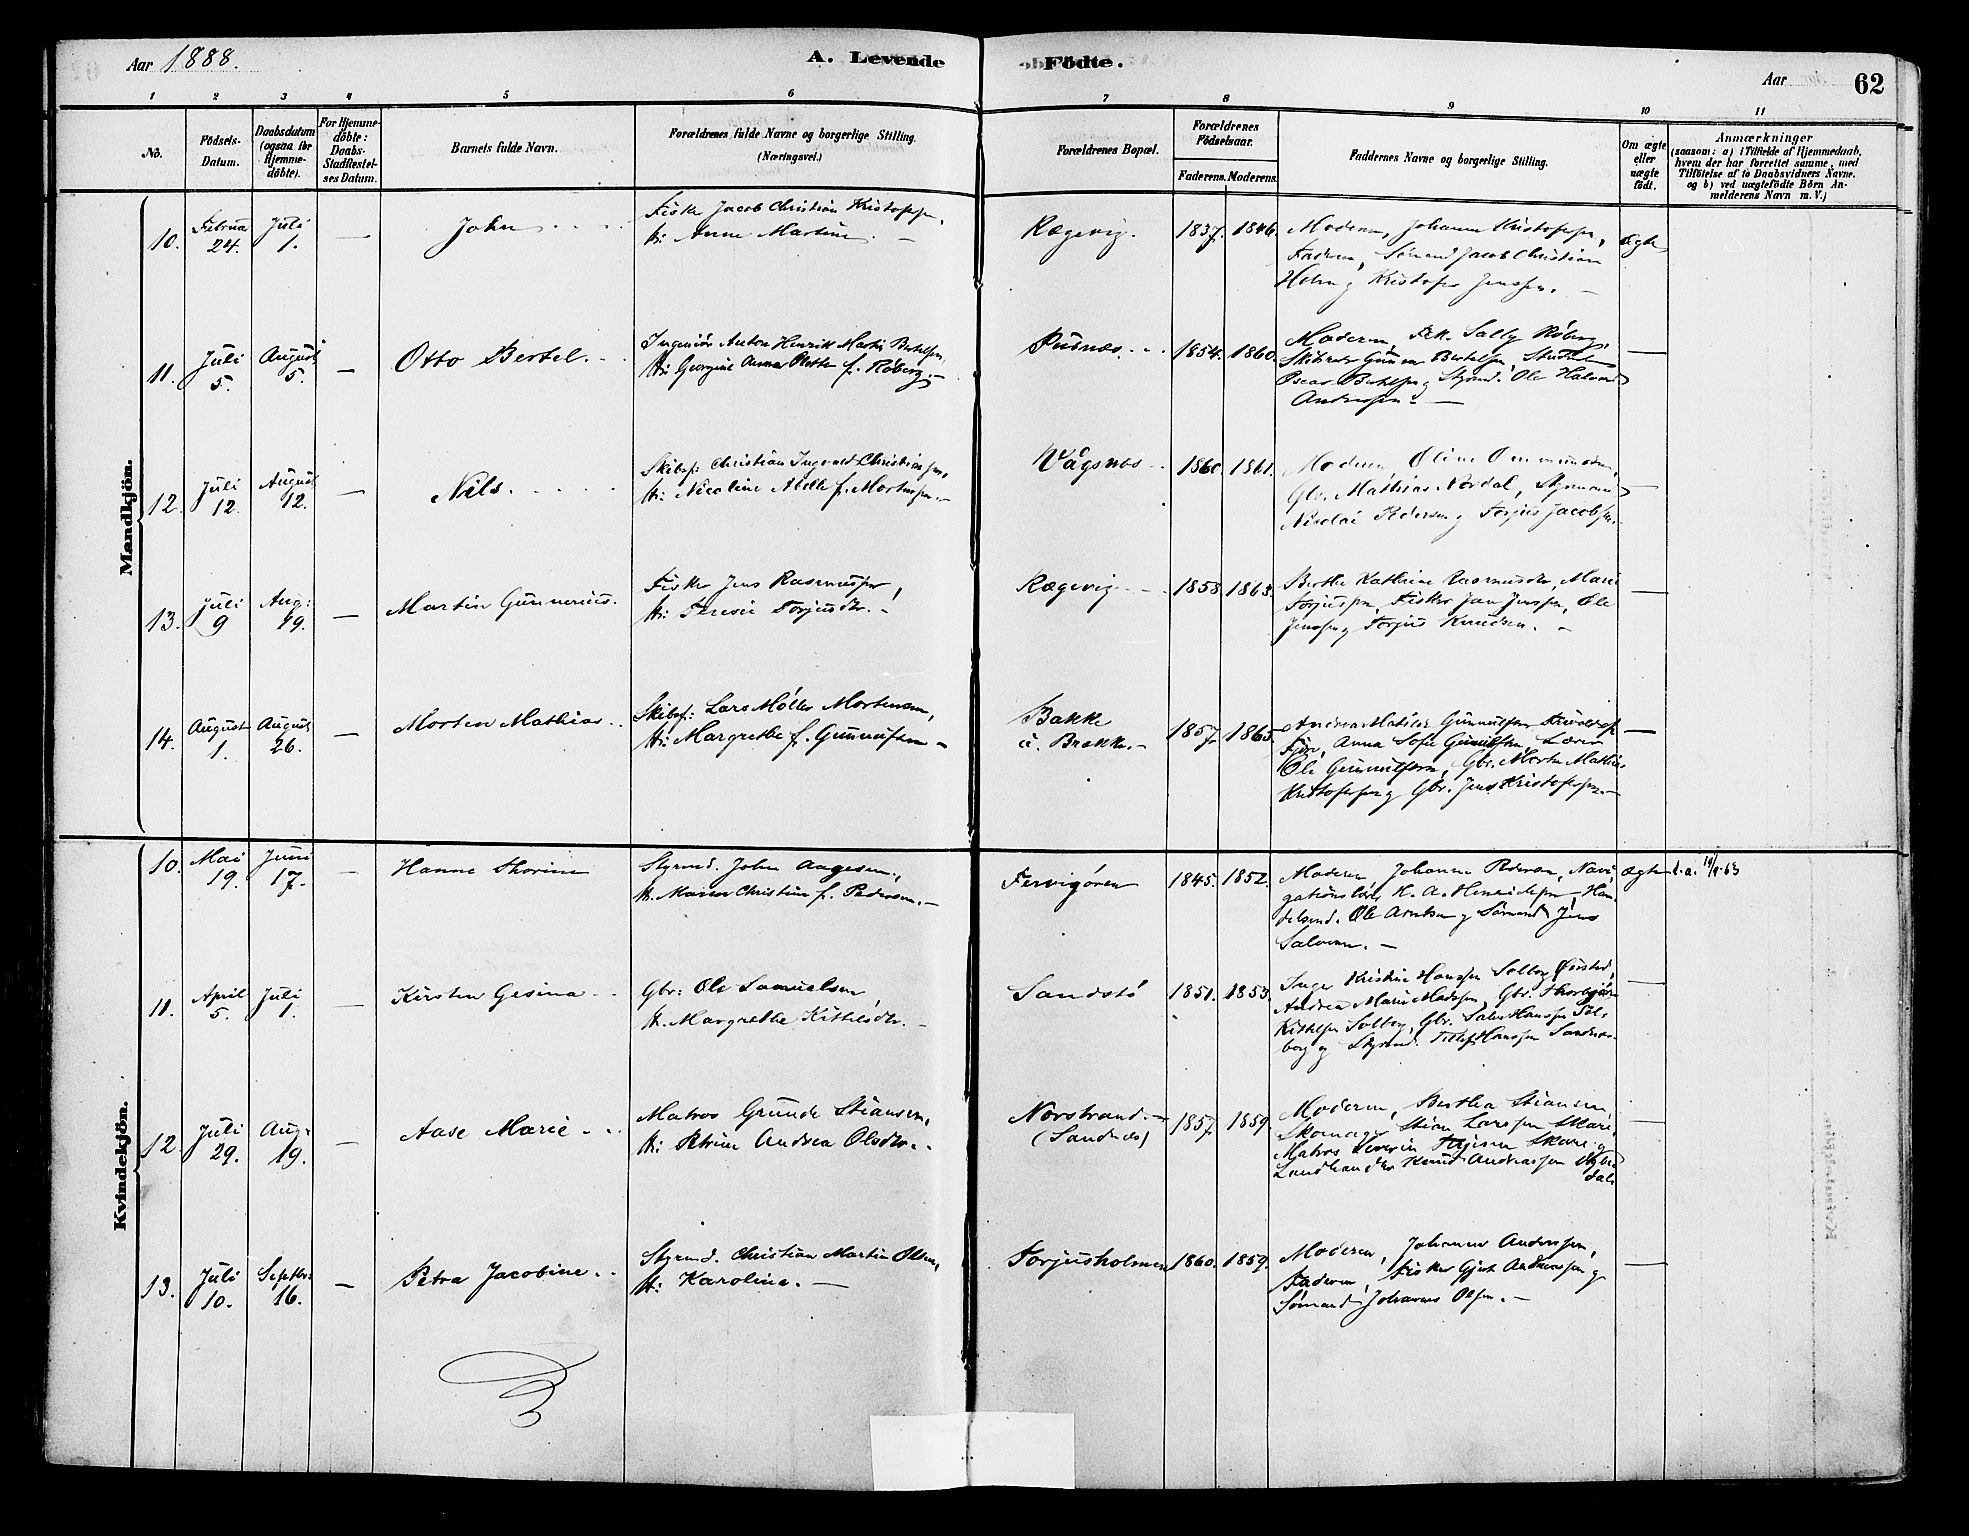 Aar 1888.
A. Levende
Födte.
Aar
62
1 2 3 4 5 6 7 8 9 10 11
No.
Födsels-
Datum.
Daabsdatum
(ogsaa for
Hjemme-
döbte).
For Hjemme-
döbte:
Daabs-
Stadfæstel-
ses Datum.
Barnets fulde Navn.
Forældrenes fulde Navne og borgerlige Stilling.
(Næringsvei.)
Forældrenes Bopæl.
Forældrenes
Födselsaar.
Faderens. Moderens.
Faddernes Navne og borgerlige Stilling.
Om ægte
eller
uægte
födt.
Anmærkninger
(saasom: a) i Tilfælde af Hjemmedaab,
hvem der har forrettet samme, med
Tilföielse af to Daabsvidners Navne,
og b) ved uægtefödte Börn An-
melderens Navn m. V.)
Mandkjön.
10.
Februar
24.
Juli
1.
—
John
Fisker Jacob Christian Kristophsen,
Hr: Anne Martine. —
Rægevig.
1837. 1846.
Moderen, Johanne Kristophsen,
Faderen, Sømand Jacob Christian
Holm og Kristopher Jensen. —
ægte
11.
Juli
5.
August
5.
—
Otto Bertel.
Ingeniör Anton Henrik Martin Bertelsen,
Hr: Georgine Anna Olette f. Röberg. —
Pusnæs
1854. 1860.
Moderen, Frk. Sally Röberg,
Skibsreder Gunner Bertelsen, Student
Oscar Bertelsen og Styrmd. Ole Halvard
Andersen. —
—
12.
Juli
12.
August
12.
—
Nils.
Skibsf: Christian Ingvald Christiansen,
Hr: Nicoline Adelle f. Mortensen. —
Vågsnæs
1860. 1861.
Moderen, Oline Ommundsen,
Gbr. Mathias Nordal, Styrmand
Nicolai Pedersen og Torjus Jacobsen.
—
13.
Juli
9
Aug:
19.
—
Martin Gunnerius.
Fisker Jens Rasmussen,
Hr: Teresie Torjusdtr. —
Rægevig
1858. 1863.
Berthe Kathrine Rasmusdtr, Marie
Torjussen, Fisker Jan Jensen, Ole
Jensen og Torjus Knudsen. —
—
14.
August
1.
August
26.
—
Morten Mathias
Skibsf: Lars Möller Mortensen,
Hr: Margrethe f. Gunnufsen —
Bakke
u. Brække. —
1857. 1865.
Andrea Matilde Gunnulfsen
Anna Sofie Gunnulfsen, Lærer
Ole Gunnulfsen, Gbr. Morten Mathias
Kristophsen og Gbr. Jens Kristophsen. —
—
Kvindekjön.
10.
Mai
19.
Juni
17.
—
Hanne Thorine
Styrmd. John Aagesen,
H. Maren Christine f. Pedersen. —
Fervigören
1845. 1852.
Moderen, Johanne Pedersen, Navi-
gationslærer K. A. Henrichsen, Han-
delsmd. Ole Arntsen og Sømand Jens
Salvesen. —
ægte
d. a. 19/9-63
11.
April
5.
Juli
1.
—
Kirsten Gesina
Gbr: Ole Samuelsen,
H. Margrethe Kittilsdtr. —
Sandstö
1851. 1853.
Inger Kristine Hansen Solborg
Andrea Marie Madsen, Gbr. Thorbjörn
Kittelsen Solborg, Gbr. Salve Hansen Sol-
borg og Styrmd. Tellef Hansen Sandnæs.
—
12.
Juli
29.
Aug:
19.
—
Aase Marie
Matros Grunde Stiansen,
Hr: Petrine Andrea Olsdtr.
Norstrand. —
(Sandnæs)
1857 1859.
Moderen, Bertha Stiansen,
Skomager Stian Larssen Skare,
Matros Severin Terjesen Skare og
Landhandler Knud Andreassen
dal.
—
13.
Juli
10.
Septbr:
16.
—
Petra Jacobine
Styrmd. Christian Martin Olsen,
Hr: Karoline. —
Torjusholmen
1860. 1859.
Moderen, Johanne Anderssen,
Faderen, Fisker Gjert Andreassen og
Sömand Johannes Olsen. —
—